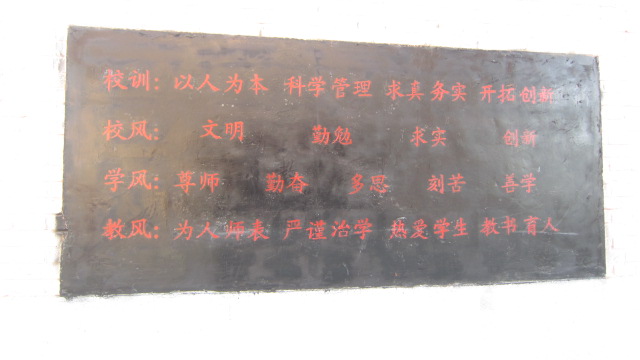 校训：以人为本 科学管理 求真务实 开拓创新
校风：文明 勤勉 求实 创新
学风：尊师 勤奋 多思 刻苦 善学
教风：为人师表 严谨治学 热爱学生 教书育人